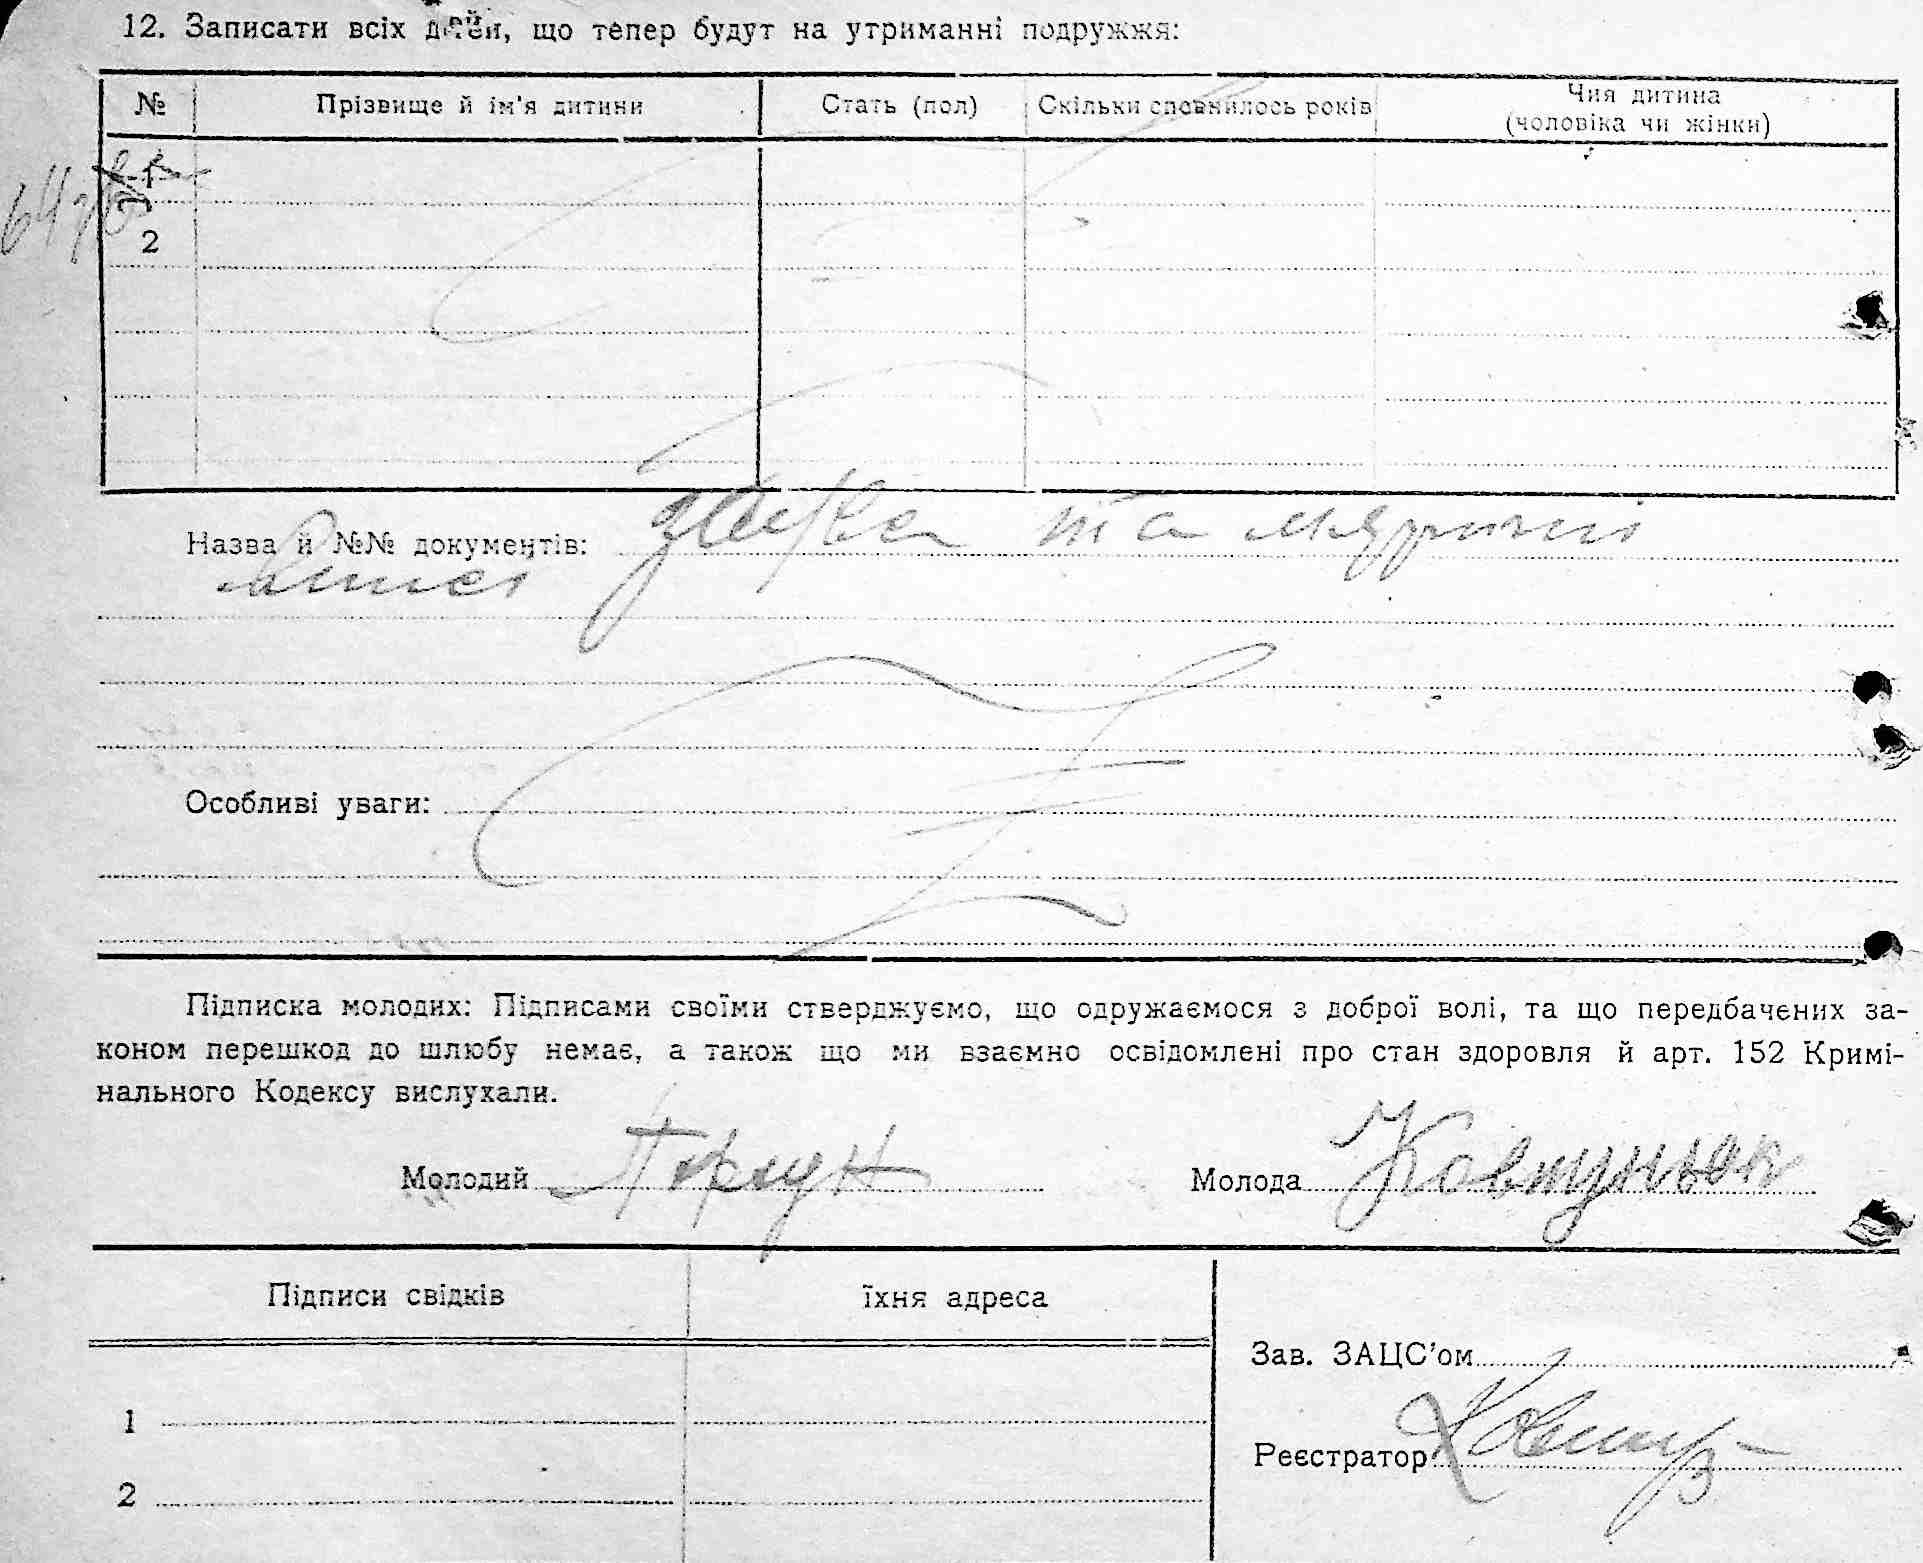 12. Записати всіх дітей, що тепер будут на утриманні подружжя:
№ Прізвище й ім'я дитини Стать (пол) Скільки сповнилось років Чия дитина (чоловіка чи жінки)
1
2
Назва й №№ документів: заява та
Особливі уваги:
Підписка молодих: Підписами своїми стверджуємо, що одружаємося з доброї волі, та що передбачених за-
коном перешкод до шлюбу немає, а також що ми взаємно освідомлені про стан здоровля й арт. 152 Кримі-
нального Кодексу вислухали.
Молодий Молода
Підписи свідків їхня адреса
Зав. ЗАЦС'ом
1
Реєстратор
2